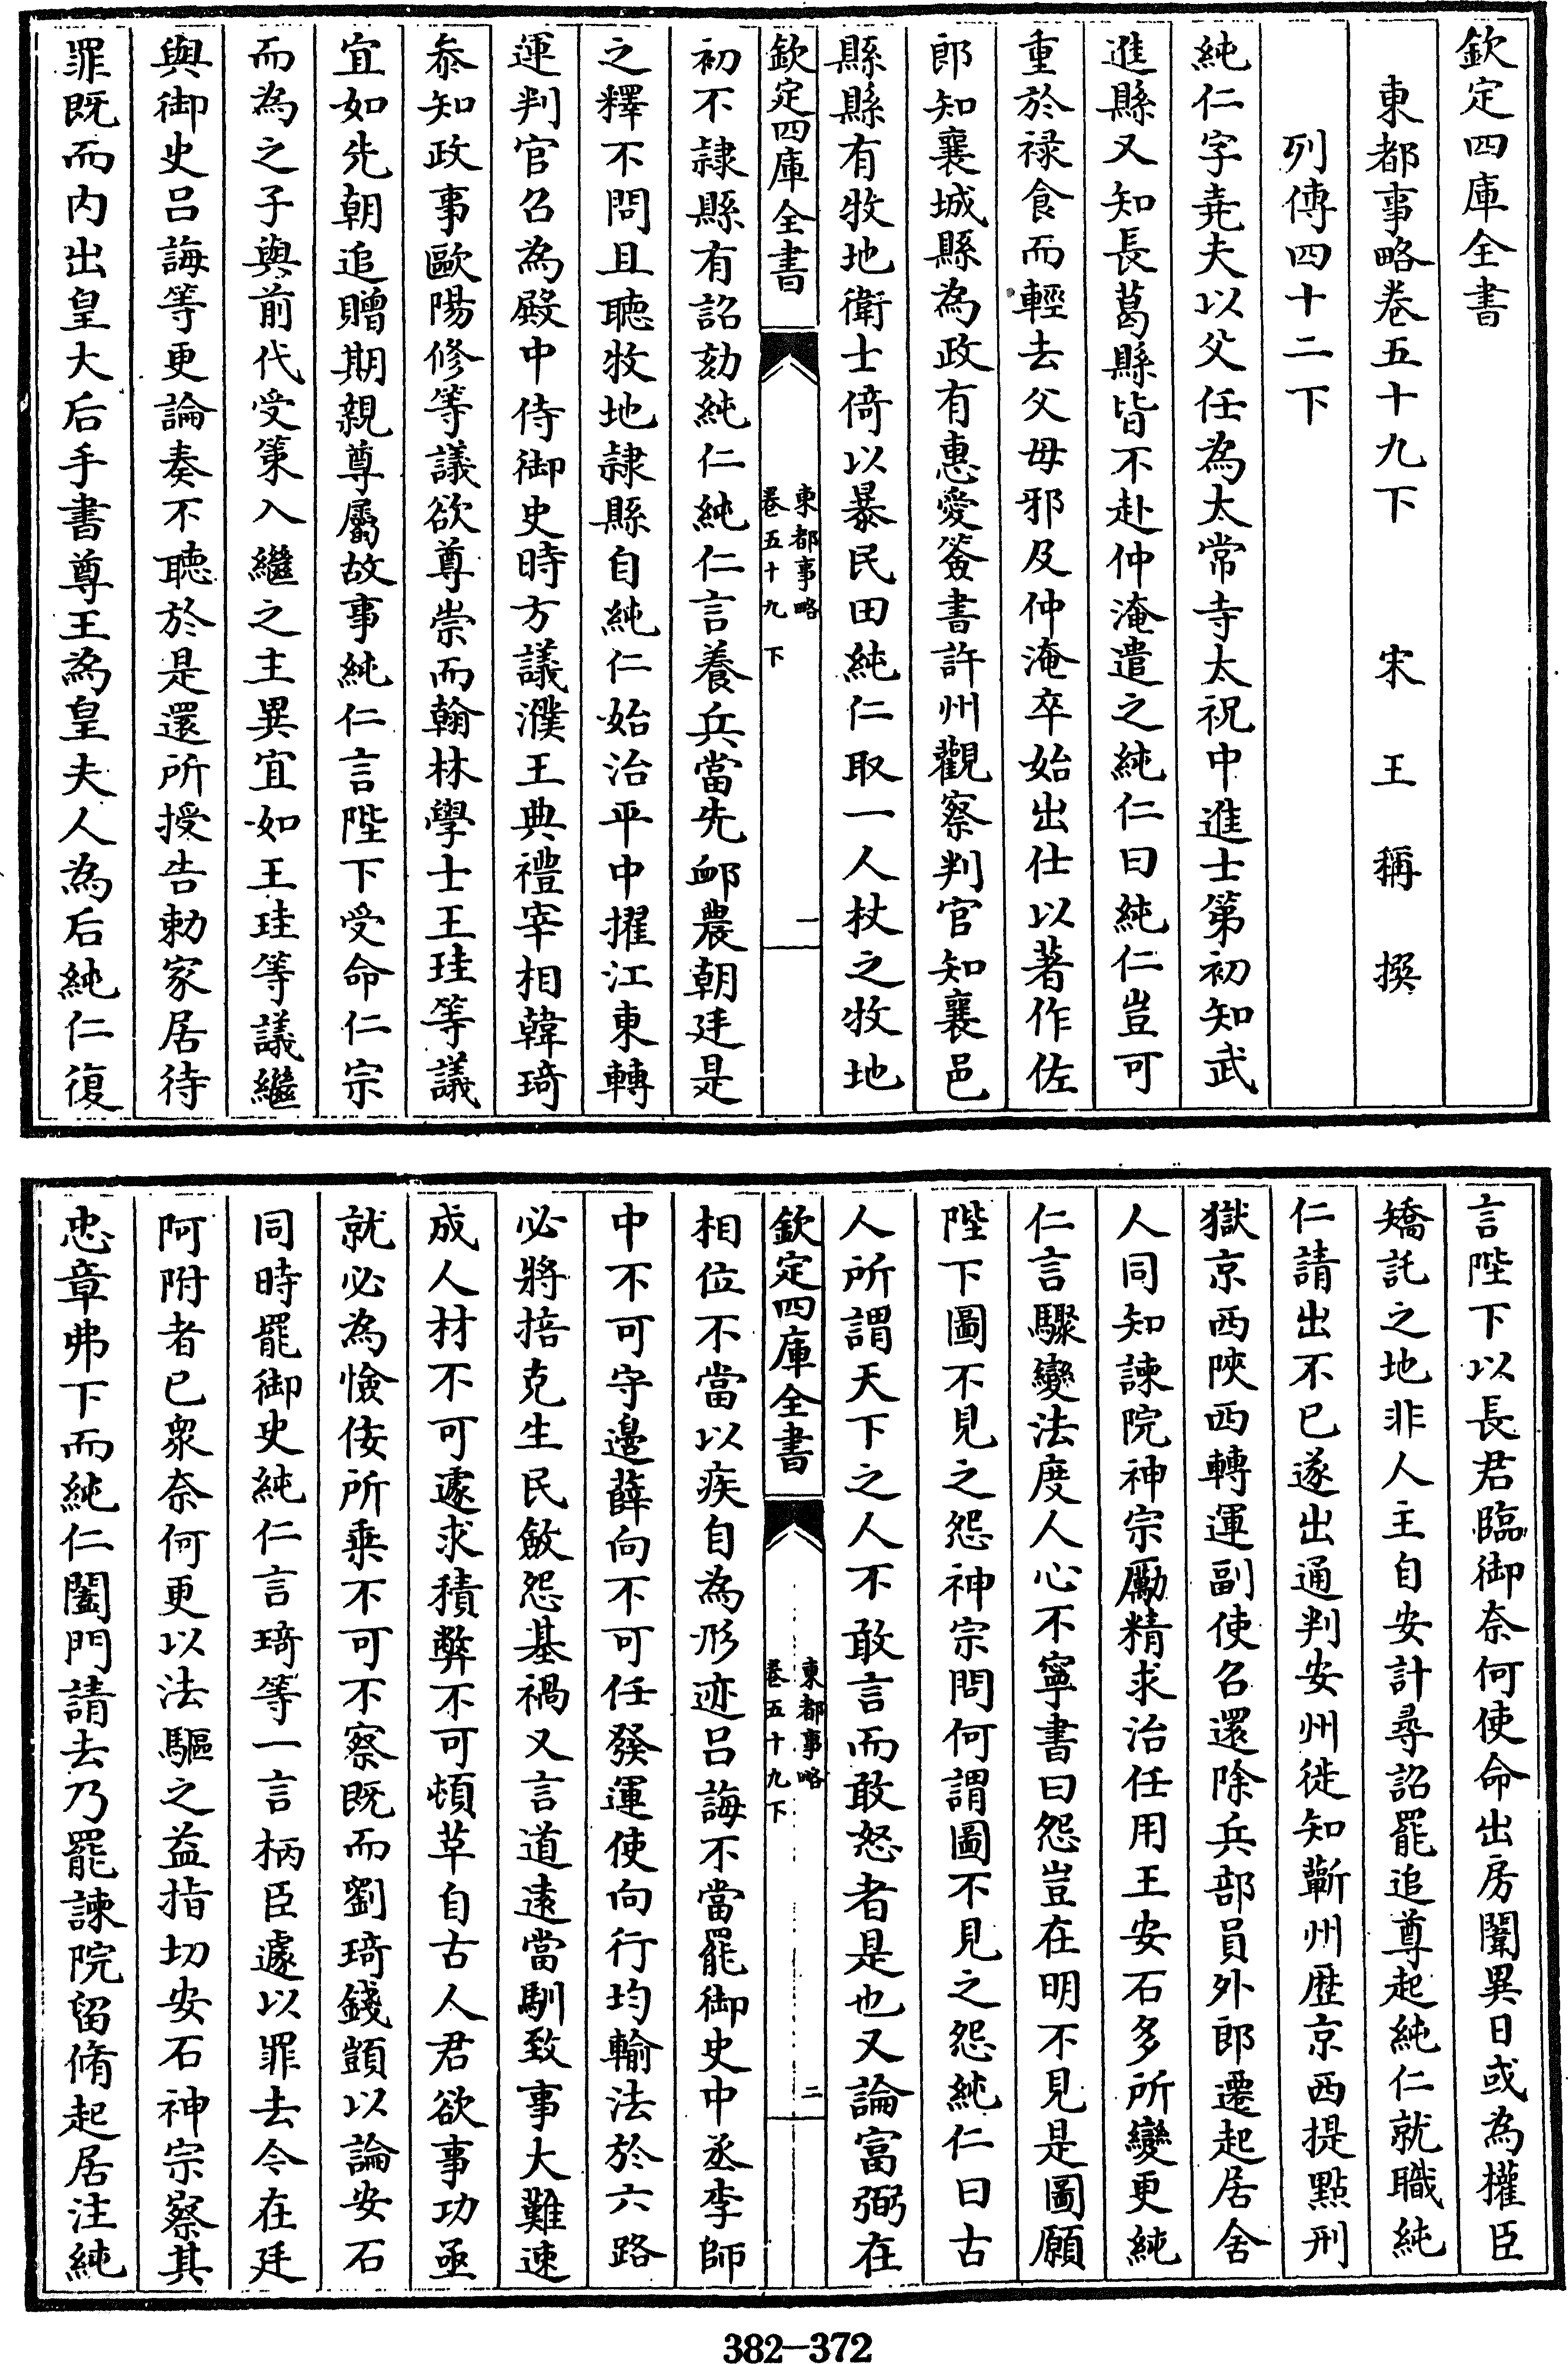 欽定四庫全書
東都事略卷五十九下　宋　王　稱　撰
列傳四十二下
純仁字堯夫以父任為太常寺太祝中進士第初知武
進縣又知長葛縣皆不赴仲淹遣之純仁曰純仁豈可
重於祿食而輕去父母邪及仲淹卒始出仕以著作佐
郎知襄城縣為政有惠愛簽書許州觀察判官知襄邑
縣縣有牧地衛士倚以暴民田純仁取一人杖之牧地
欽定四庫全書
東都事略
卷五十九下
一
初不隷縣有詔劾純仁純仁言養兵當先䘏農朝廷是
之釋不問且聽牧地隷縣自純仁始治平中擢江東轉
運判官召為殿中侍御史時方議濮王典禮宰相韓琦
叅知政事歐陽修等議欲尊崇而翰林學士王珪等議
宜如先朝追贈期親尊屬故事純仁言陛下受命仁宗
而為之子與前代受策入繼之主異宜如王珪等議繼
與御史吕誨等更論奏不聽於是還所授告勅家居待
罪既而内出皇大后手書尊王為皇夫人為后純仁復
言陛下以長君臨御奈何使命出房闈異日或為權臣
矯託之地非人主自安計尋詔罷追尊起純仁就職純
仁請出不已遂出通判安州徙知蘄州歴京西提點刑
獄京西陜西轉運副使召還除兵部員外郎遷起居舍
人同知諫院神宗勵精求治任用王安石多所變更純
仁言驟變法度人心不寧書曰怨豈在明不見是圖願
陛下圖不見之怨神宗問何謂圖不見之怨純仁曰古
人所謂天下之人不敢言而敢怒者是也又論富弼在
欽定四庫全書
東都事略
卷五十九下
二
相位不當以疾自為形迹吕誨不當罷御史中丞李師
中不可守邊薛向不可任發運使向行均輸法於六路
必將掊克生民斂怨基禍又言道遠當馴致事大難速
成人材不可遽求積弊不可頓革自古人君欲事功亟
就必為憸佞所乗不可不察既而劉琦錢顗以論安石
同時罷御史純仁言琦等一言柄臣遽以罪去今在廷
阿附者已衆奈何更以法驅之益指切安石神宗察其
忠章弗下而純仁闔門請去乃罷諫院留脩起居注純
382-372